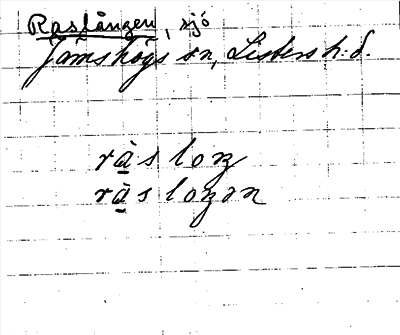 Raslången, sjö
Jämshögs sn, Listers h:d.
rà̱s loŋ
rà̱s loŋən